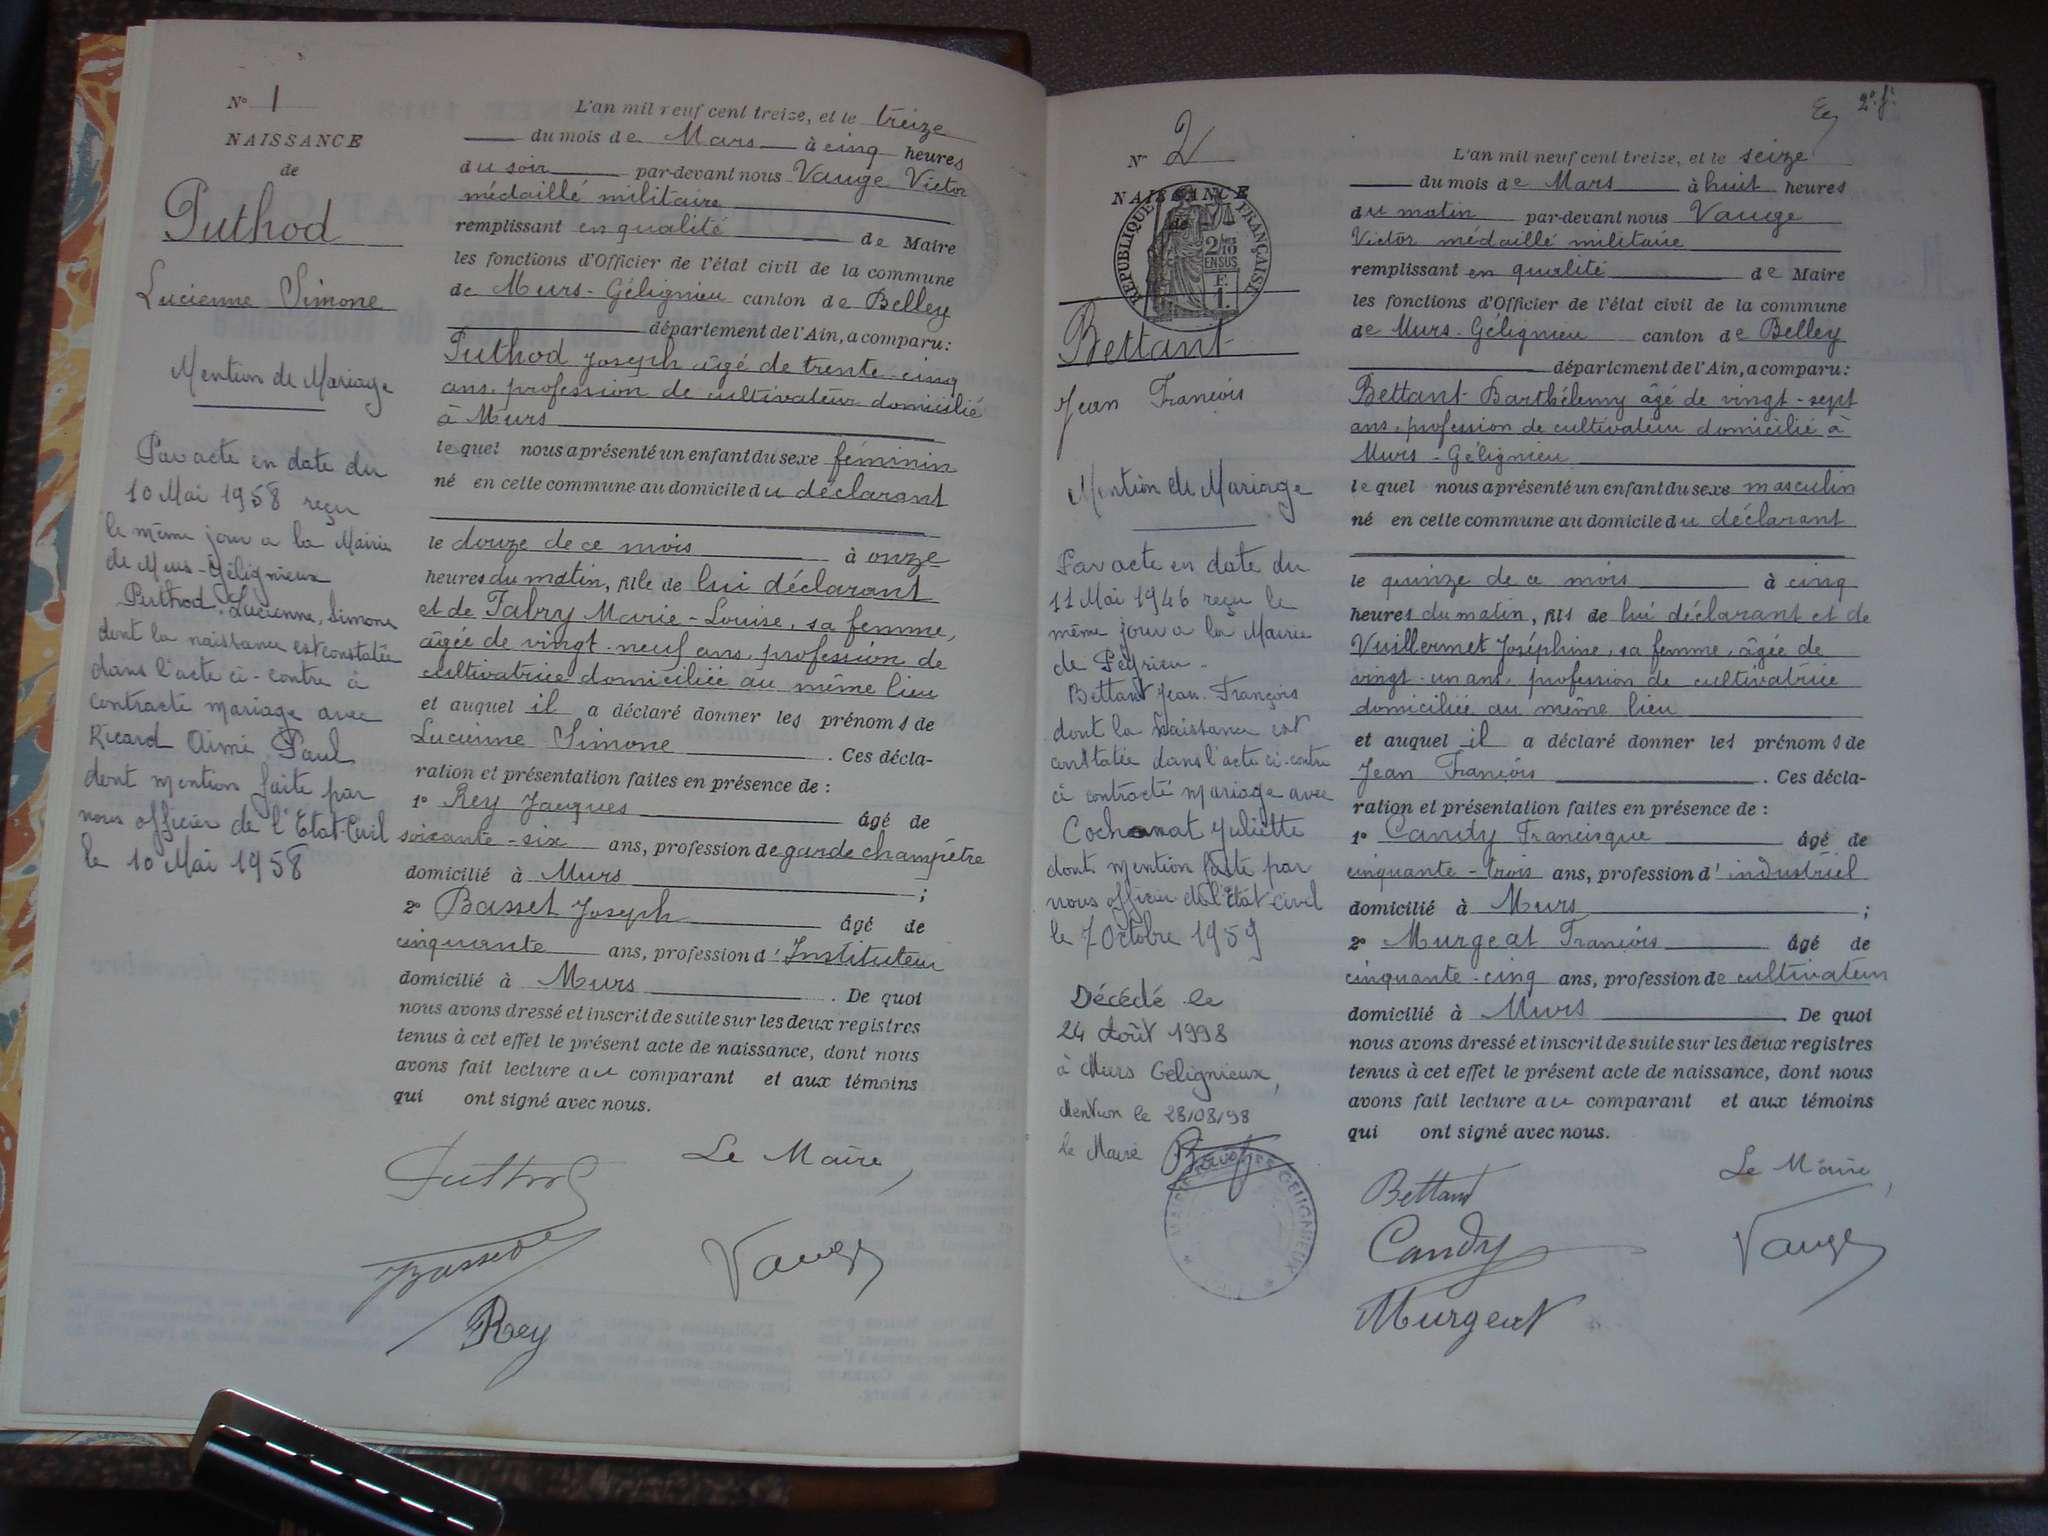 N° 1
NAISSANCE
de
Puthod
Lucienne Simone
Mention de Mariage
Par acte en date du
10 Mai 1958 reçu
le même jour a la Mairie
de Murs-Gélignieux
Puthod, Lucienne, Simone
dont la naissance est constatée
dans l'acte ci-contre à
contracté mariage avec
Ricard Aimé Paul
dont mention faite par
nous officier de l'Etat-Civil
le 10 Mai 1958
L'an mil neuf cent treize, et le treize
du mois de Mars à cinq heures
du soir par-devant nous Vauge Victor
médaillé militaire
remplissant en qualité de Maire
les fonctions d'Officier de l'état civil de la commune
de Murs-Gélignieu canton de Belley
département de l'Ain, a comparu:
Puthod Joseph âgé de trente-cinq
ans, profession de cultivateur domicilié
à Murs
lequel nous a présenté un enfant du sexe féminin
né en cette commune au domicile du déclarant
le douze de ce mois à onze
heures du matin, fille de lui déclarant
et de Fabry Marie-Louise, sa femme,
âgée de vingt-neuf ans, profession de
cultivatrice domiciliée au même lieu
et auquel il a déclaré donner les prénoms de
Lucienne Simone. Ces décla-
ration et présentation faites en présence de :
1° Rey Jacques âgé de
soixante-six ans, profession de garde champêtre
domicilié à Murs ;
2° Basset Joseph âgé de
cinquante ans, profession d'Instituteur
domicilié à Murs. De quoi
nous avons dressé et inscrit de suite sur les deux registres
tenus à cet effet le présent acte de naissance, dont nous
avons fait lecture au comparant et aux témoins
qui ont signé avec nous.
Puthod
Le Maire,
Basset
Vauge
Rey
2° f°
N° 2
NAISSANCE
de
RÉPUBLIQUE FRANÇAISE
2/10 EN SUS
F.
1.
Bettant
Jean François
Mention de Mariage
Par acte en date du
11 Mai 1946 reçu le
même jour a la Mairie
de Peyrieu -
Bettant Jean-François
dont la naissance est
constatée dans l'acte ci-contre
ci contracté mariage avec
Cochonat Juliette
dont mention faite par
nous officier de l'Etat-Civil
le 7 Octobre 1959
Décédé le
24 Août 1998
à Murs Gélignieux,
Mention le 28/08/98
le Maire
L'an mil neuf cent treize, et le seize
du mois de Mars à huit heures
du matin par-devant nous Vauge
Victor médaillé militaire
remplissant en qualité de Maire
les fonctions d'Officier de l'état civil de la commune
de Murs-Gélignieu canton de Belley
département de l'Ain, a comparu:
Bettant Barthélemy âgé de vingt-sept
ans, profession de cultivateur domicilié à
Murs-Gélignieu
lequel nous a présenté un enfant du sexe masculin
né en cette commune au domicile du déclarant
le quinze de ce mois à cinq
heures du matin, fils de lui déclarant et de
Vuillermet Joséphine, sa femme, âgée de
vingt-un ans, profession de cultivatrice
domiciliée au même lieu
et auquel il a déclaré donner les prénoms de
Jean François. Ces décla-
ration et présentation faites en présence de :
1° Candy Francisque âgé de
cinquante-trois ans, profession d'industriel
domicilié à Murs ;
2° Murgeat François âgé de
cinquante-cinq ans, profession de cultivateur
domicilié à Murs. De quoi
nous avons dressé et inscrit de suite sur les deux registres
tenus à cet effet le présent acte de naissance, dont nous
avons fait lecture au comparant et aux témoins
qui ont signé avec nous.
Bettant
Le Maire,
Candy
Vauge
Murgeat